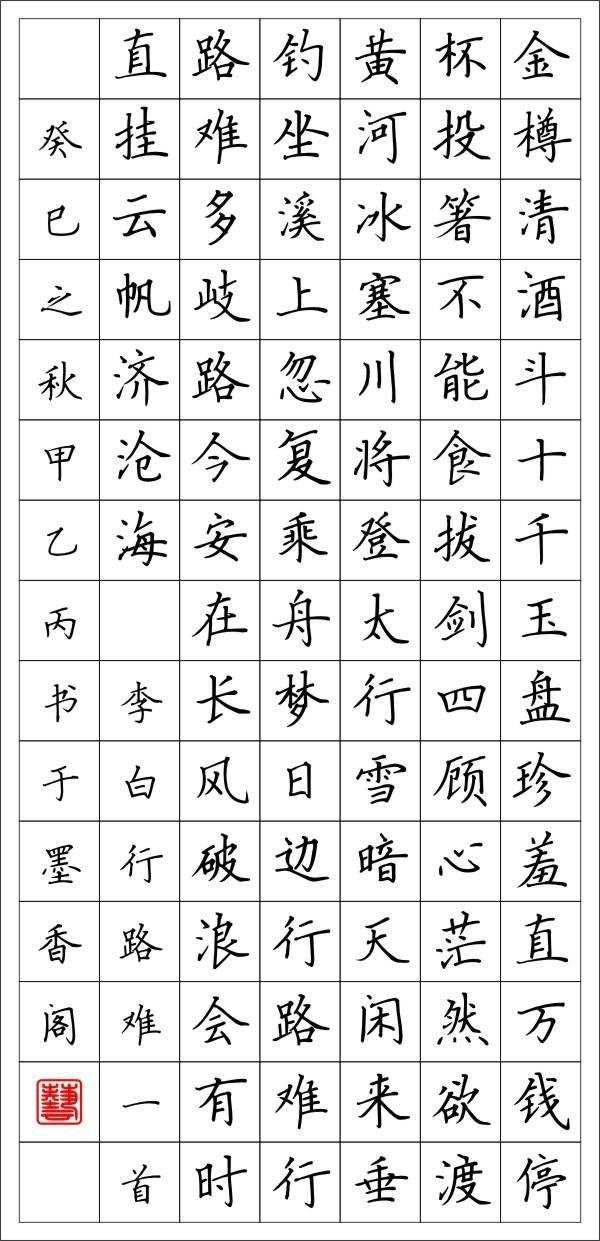 金樽清酒斗十千玉盘珍羞直万钱停
杯投箸不能食拔剑四顾心茫然欲渡
黄河冰塞川将登太行雪暗天闲来垂
钓坐溪上忽复乘舟梦日边行路难行
路难多歧路今安在长风破浪会有时
直挂云帆济沧海 李白行路难一首
癸巳之秋甲乙丙书于墨香阁
藝